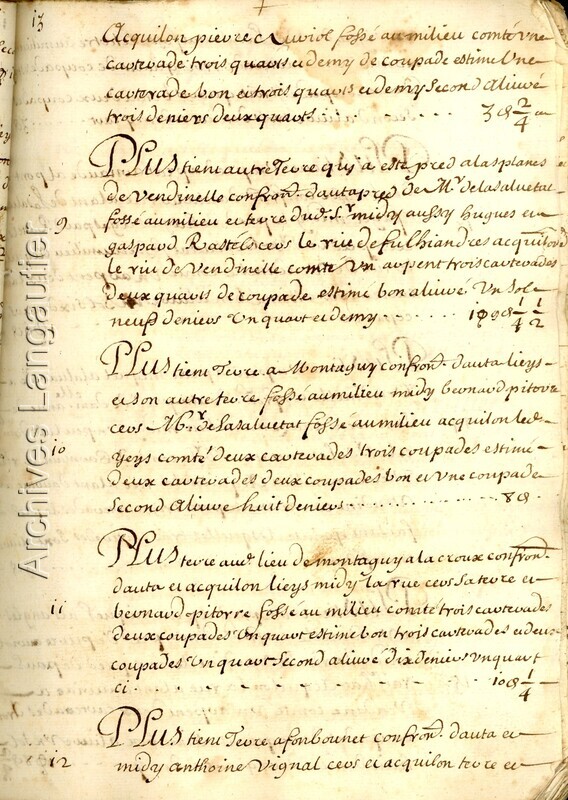 13
Acquilon pierre Cruviol fossé au milieu comté une
carterade trois quarts et demy de coupade estimé Une
carterade bon et trois quarts et demy second aliuré
trois deniers deux quarts 3 d 2/4
PLUS tient autre Terre quy a esté pred a las planes
de Vendinelle confron. d'auta pred de Mr. de lasaluetat
fossé au milieu et terre dud. Sr. midy aussy hugues et
9
gaspard Rastels cers le riu de fulhiandres acquilon
le riu de Vendinelle comté Un arpent trois carterades
deux quarts de coupade estimé bon aliuré Un sol
neuf deniers Un quart et demy 1 s 9 d 1/4 1/2
PLus tient Terre a Montaguy confron. d'auta lieys
et son autre terre fossé au milieu midy bernard pitorre
cers Mr. de Lasaluetat fossé au milieu acquilon led.
10
lieys comté deux carterades trois coupades estimé
deux carterades deux coupades bon et Une coupade
second Aliuré huit deniers 8 d
PLus terre aud. lieu de montaguy a la croux confron.
d'auta et acquilon lieys midy la rue cers sa terre et
11
bernard pitorre fossé au milieu comté trois carterades
deux coupades Un quart estimé bon trois carterades et deux
coupades Un quart second aliuré dix deniers Un quart
ci 10 d 1/4
PLus tient Terre a fonbounet confron. d'auta et
12
midy anthoine Vignal cers et acquilon terre et
Archives Langautier